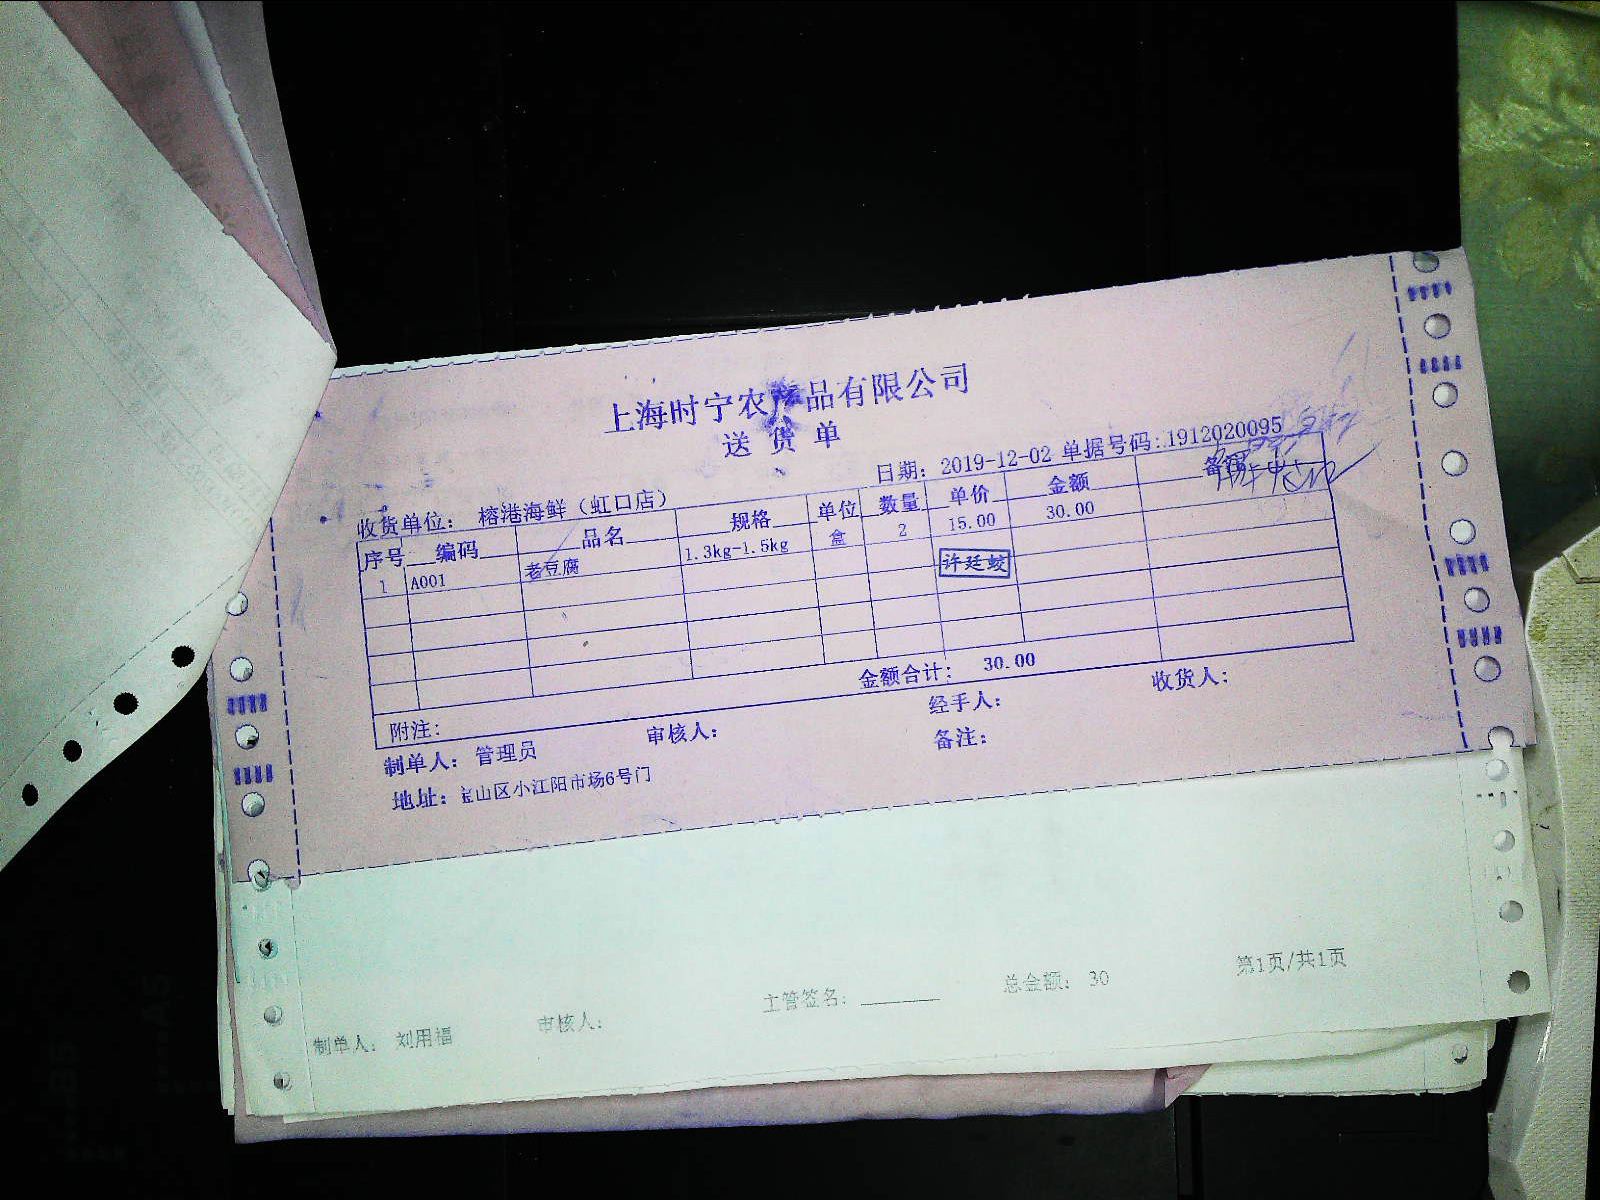 上海时宁农产品有限公司
送货单
日期：2019-12-02 单据号码：1912020095
收货单位：榕港海鲜（虹口店）
序号 编码 品名 规格 单位 数量 单价 金额 备注
1 A001 老豆腐 1.3kg-1.5kg 盒 2 15.00 30.00
许廷蛟
金额合计：30.00
附注：
制单人：管理员 审核人： 经手人： 收货人：
地址：宝山区小江阳市场6号门 备注：
制单人：刘用福 审核人： 主管签名： 总金额：30 第1页/共1页